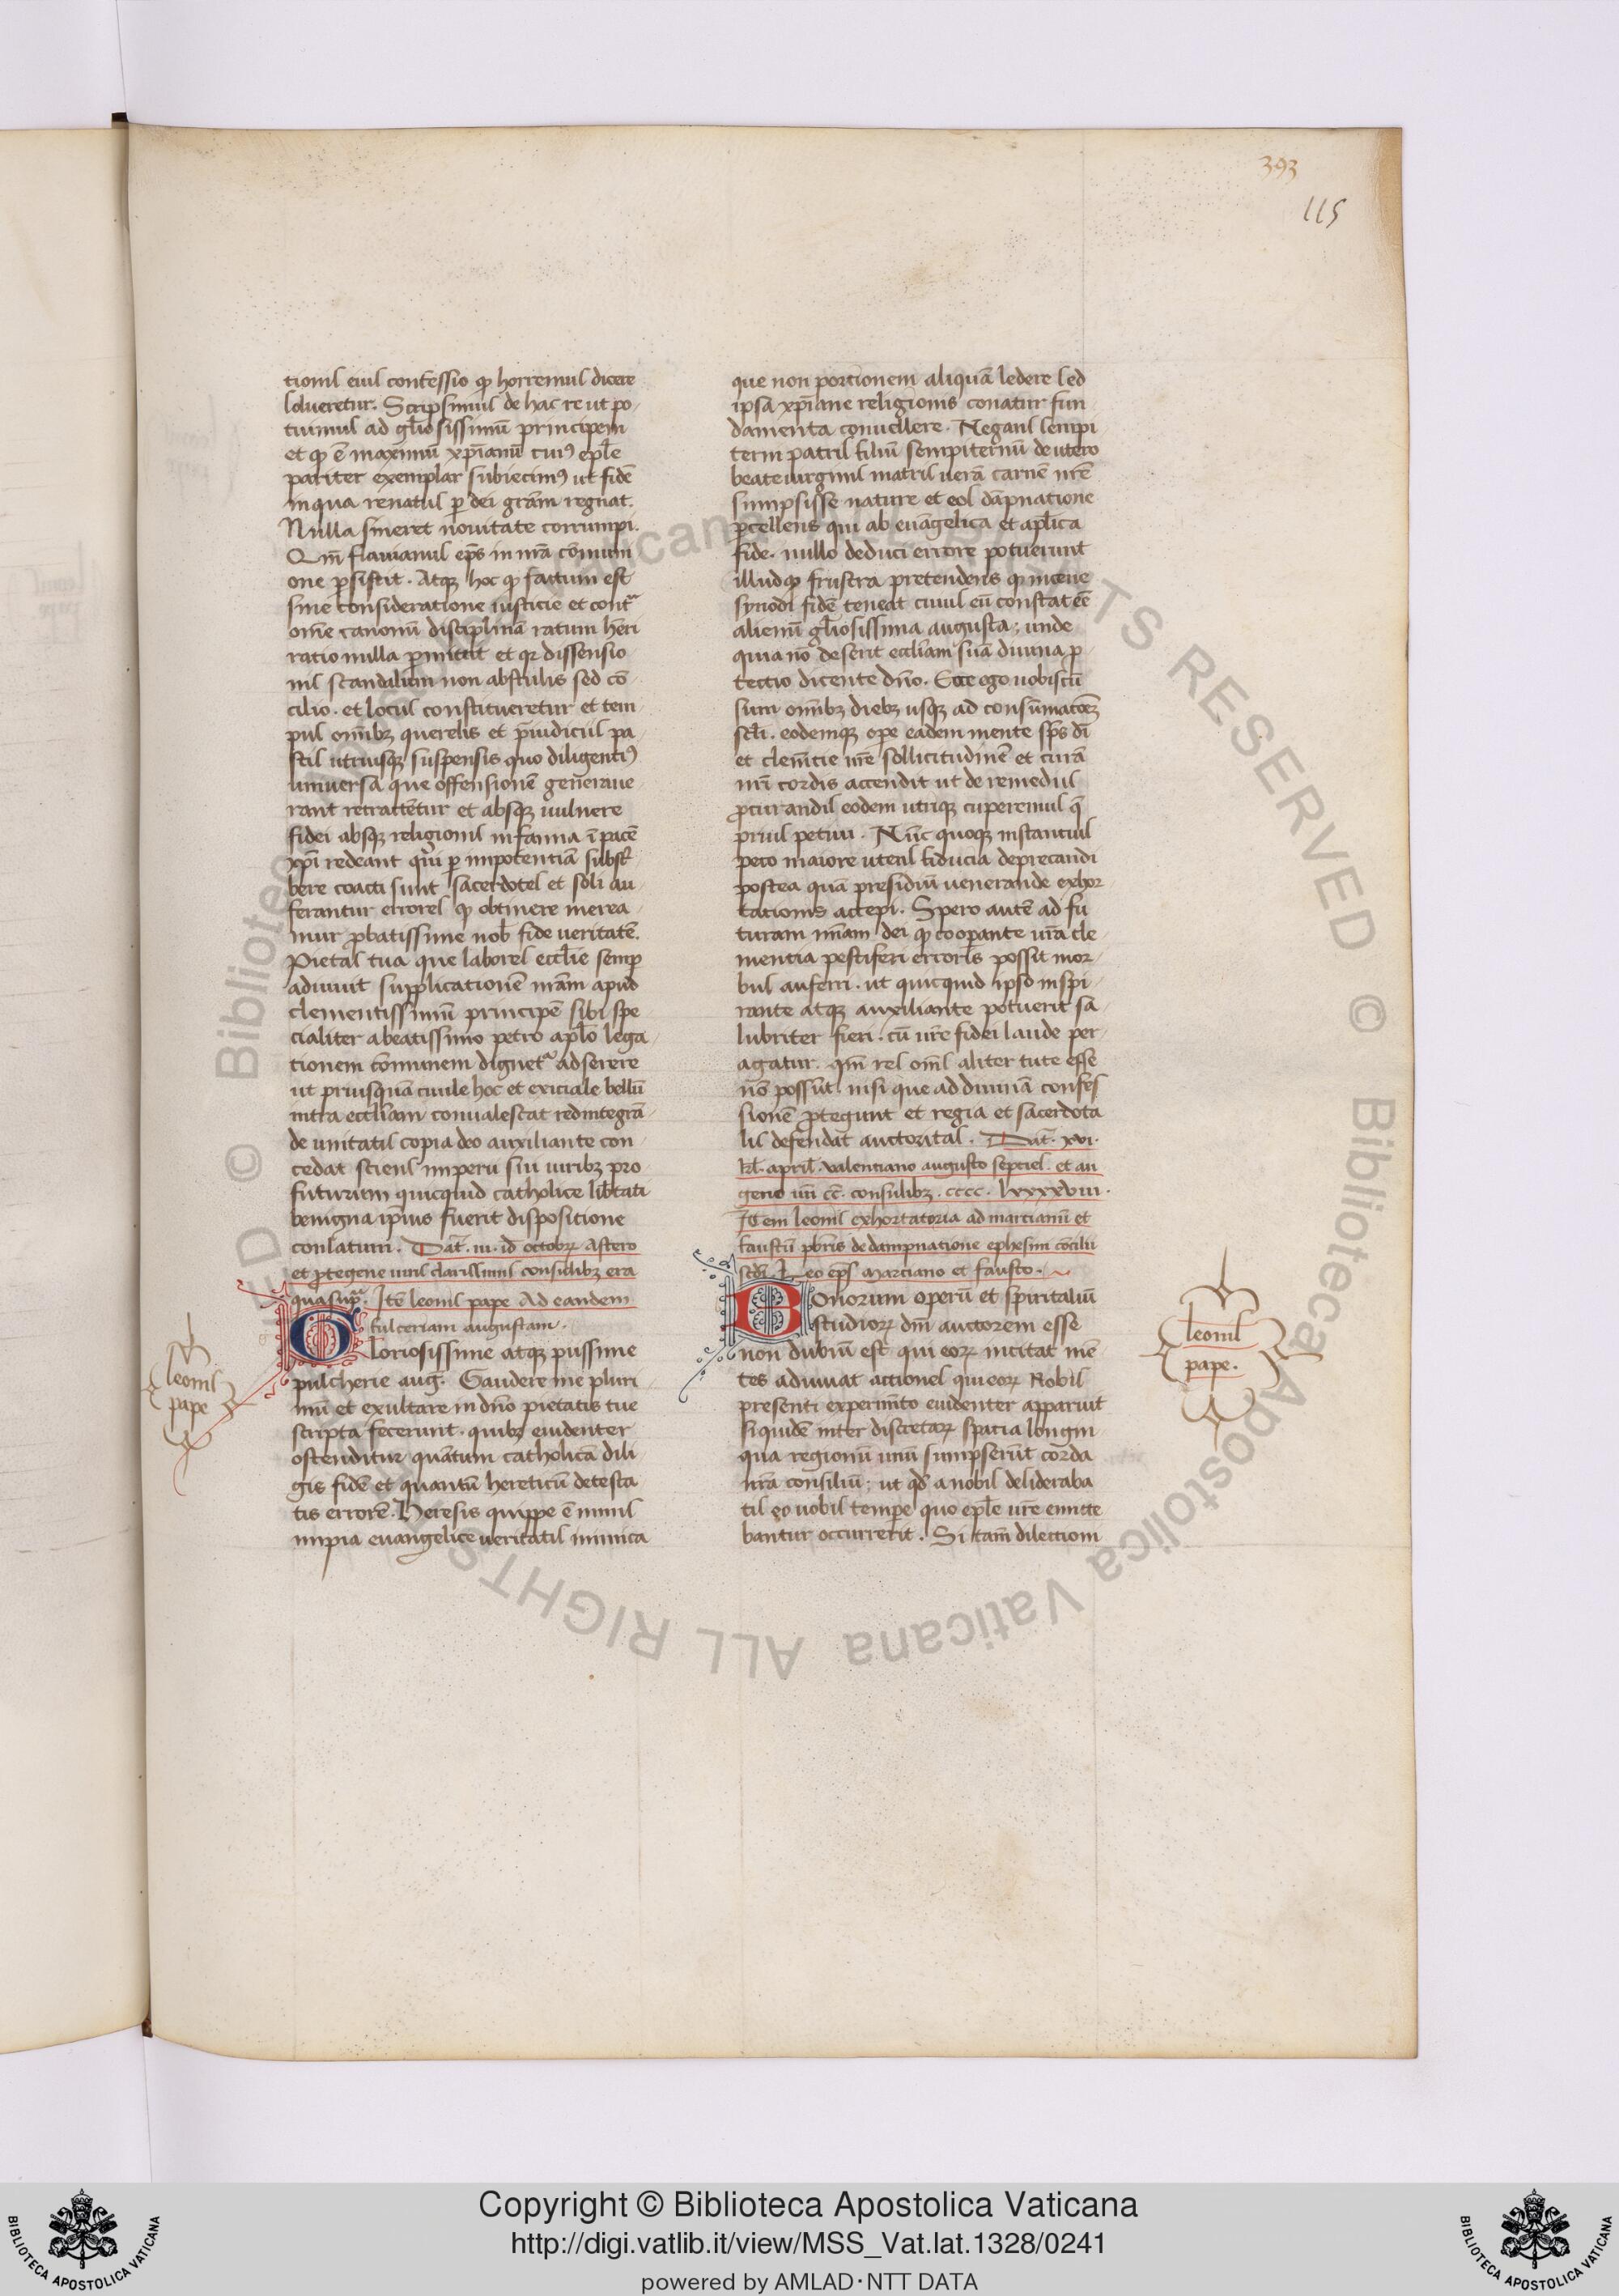 393
115
tionis eius confessio qp horremus dicere
solveretur. Scripsimus de hac re ut po
tuimus ad gl̄iosissimū principem
et qp ē maximū xp̄ianū cui⁹ epl̄e
pariter exemplar subiecim⁹ ut fidē
in qua renatus p dei grām regnat.
Nulla sineret nouitate corrumpi.
Qm̄ flauianus ep̄s in nrā cōmuni
one psistit. Atqz hoc qp factum est
sine consideratione iusticie et contᵃ
om̄e canonū disciplinā ratum hēri
ratio nulla pmittit et qr dissensio
nis scandalum non abstulis sed cō
cilio. et locus constitueretur et tem
pus om̄ibz querelis et p̄iudiciis pa
stis utriusqz suspensis quo diligenti⁹
uniuersa que offensionē gen̄eraue
rant retractētur et absqz uulnere
fidei absqz religionis infamia ī pacē
xp̄i redeant qui p impotentiā subsc̄
bere coacti sunt sacerdotes et soli au
ferantur errores qp obtinere merea
mur pbatissime nob̄ fide ueritatē.
Pietas tua que labores eccl̄ie semp
adiuuit supplicationē nrām apud
clementissimū principē sibi spe
cialiter a beatissimo petro apl̄o lega
tionem cōmunem dignetᵃ adserere
ut priusquā ciuile hoc et exiciale bellū
intra eccl̄iam conualescat redintegrā
de unitatis copia deo auxiliante con
cedat sciens imperii sui uiribz pro
futurum quicquid catholice lib̄tati
benigna ip̄ius fuerit dispositione
conlatum. Dat̄. iii. id̄ octobrꝝ Astero
et protegene uiris clarissimis consulibz era
qua supᵃ. Itē leonis pape Ad eandem
fulceriam augustam.
Gloriosissime atqz piissime
pulcherie auḡ. Gaudere me pluri
mū et exultare in dn̄o pietatis tue
scripta fecerunt. quibz euidenter
ostenditur quātum catholicā dili
gis fidē et quantū hereticū detesta
tis errorē. Heresis quippe ē nimis
impia euangelice ueritatis inimica
leonis
pape
que non portionem aliquā ledere sed
ipsa xp̄iane religionis conatur fun
damenta conuellere. Negans sempi
terni patris filiū sempiternū de utero
beate uirginis matris uerā carnē nrē
sumpsisse nature et eos dāpnatione
pcellens qui ab euāngelica et apl̄ica
fide. nullo deduci errore potuerunt
illudqp frustra pretendens qp nicene
synodi fidē teneat cuius eū constat eē
alienū gl̄iosissima augusta; unde
quia nō deserit eccl̄iam suā diuina p
tectio dicente dn̄o. Ecce ego uobiscū
sum om̄ibz diebz usqz ad consūmatōēz
scl̄i. eodemqz ope eadem mente sp̄s dī
et clem̄tie urē sollicitudinē et curā
nrī cordis accendit ut de remediis
pcurandis eodem utriqz cuperemus q̄
prius petiui. Nūc quoqz instantius
peto maiore utens fiducia deprecandi
postea quā presidiū uenerande exhor
tationis accepi. Spero autē ad fu
turam mīam dei qp coopante urā cle
mentia pestiferi erroris possit mor
bus auferri. ut quicquid ipso inspi
rante atqz auxiliante potuerit sa
lubriter fieri. cū urē fidei laude per
agatur. qm̄ res om̄s aliter tute esse
nō possūt nisi que ad diuinā confes
sionē ptegunt et regia et sacerdota
lis defendāt auctoritas. Dat̄. xvi.
kl̄. april̄. valentiano augusto septies. et au
geno uiri cc̄. consulibz. cccc. lxxxxviii.
Item leonis exhortatoria ad marcianū et
faustū pbrīs de dampnatione ephesini cōcilii
scdī. Leo ep̄s Marciano et fausto.
Bonorum operū et spiritaliū
studiorꝝ dm̄ auctorem esse
non dubiū est qui eorꝝ incitat mē
tes adiuuat actiones qui eorꝝ Nobis
presenti experimēto euidenter apparuit
si quidē inter discretarꝝ spatia longin
qua regionū unū sumpserūt corda
nrā consiliū; ut qd̄ a nobis desideraba
tis eo uobis tempe quo epl̄e urē emitte
bantur occurrerit. Si tam̄ dilectioni
leonis
pape.
© Biblioteca Apostolica Vaticana ALL RIGHTS RESERVED
Copyright © Biblioteca Apostolica Vaticana
http://digi.vatlib.it/view/MSS_Vat.lat.1328/0241
powered by AMLAD·NTT DATA
BIBLIOTECA APOSTOLICA VATICANA
BIBLIOTECA APOSTOLICA VATICANA